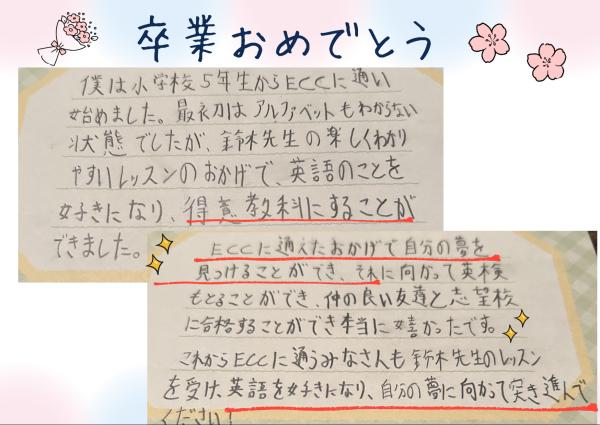 卒業おめでとう
僕は小学校5年生からECCに通い
始めました。最初はアルファベットもわからない
状態でしたが、鈴木先生の楽しくわかり
やすいレッスンのおかげで、英語のことを
好きになり、得意教科にすることが
できました。
ECCに通えたおかげで自分の夢を
見つけることができ、それに向かって英検
もとることができ、仲の良い友達と志望校
に合格することができ本当に嬉かったです。
これからECCに通うみなさんも鈴木先生のレッスン
を受け、英語を好きになり、自分の夢に向かって突き進んで
ください!